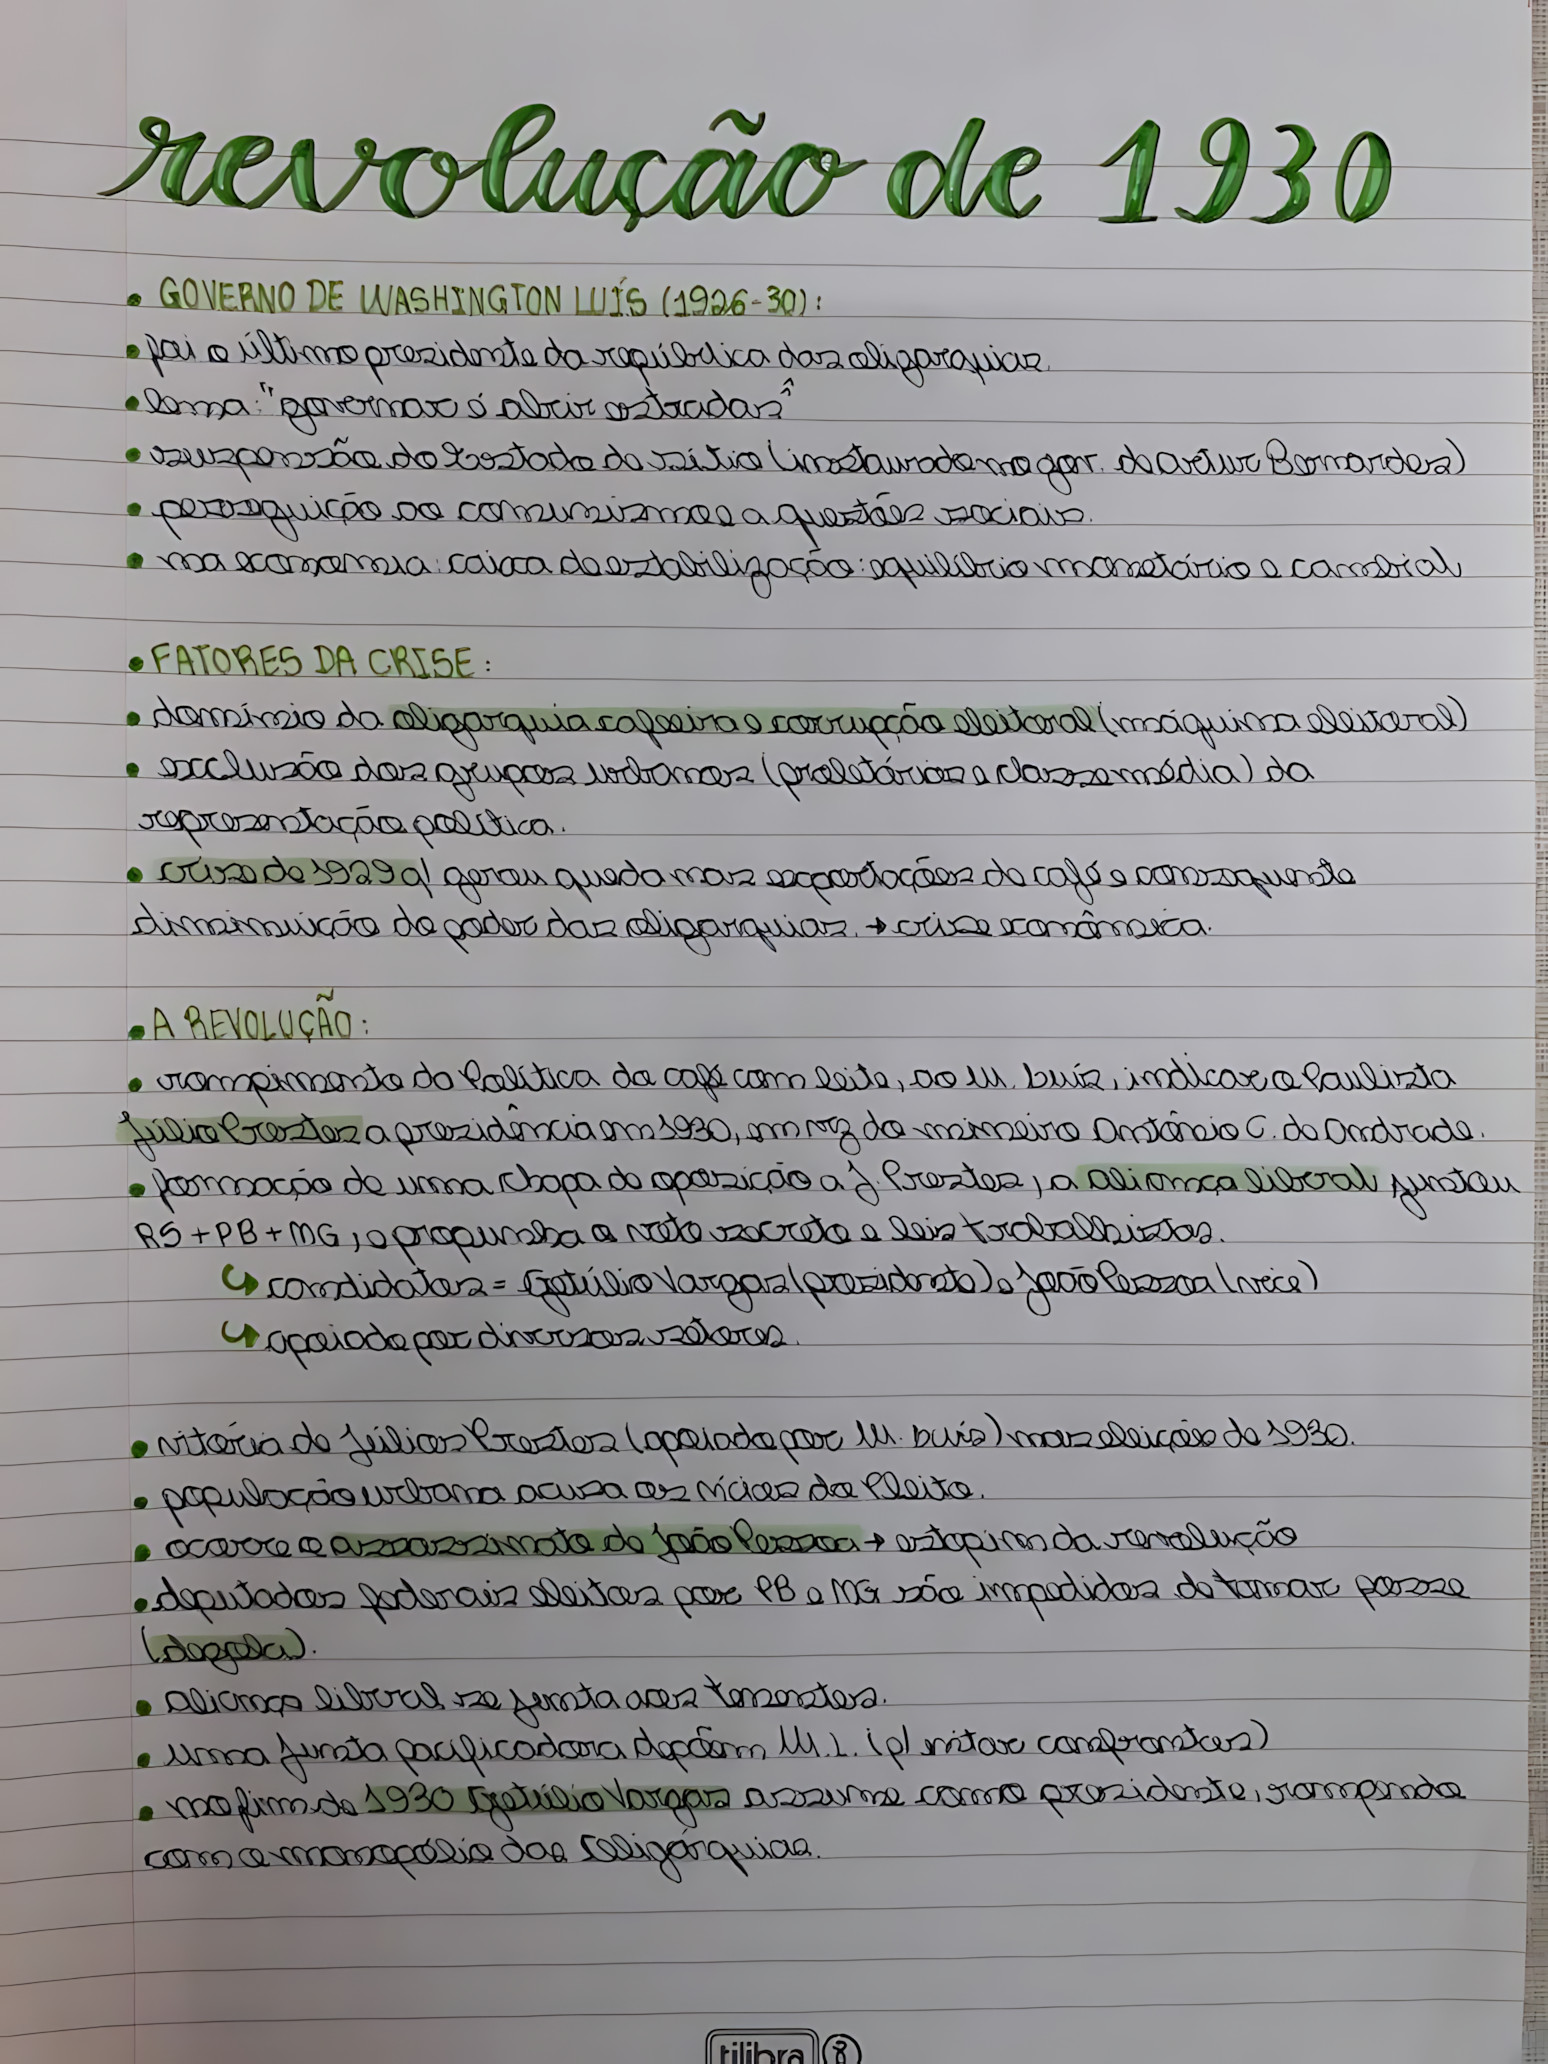 revolução de 1930
• GOVERNO DE WASHINGTON LUÍS (1926-30):
• foi o último presidente da república das oligarquias.
• lema: "governar é abrir estradas"
• suspensão do Estado de Sítio (instaurado no gov. de Artur Bernardes)
• perseguição ao comunismo e a questões sociais.
• na economia: caixa de estabilização: equilíbrio monetário e cambial
• FATORES DA CRISE:
• domínio da oligarquia cafeeira e corrupção eleitoral (máquina eleitoral)
• exclusão dos grupos urbanos (proletários e classe média) da
representação política.
• crise de 1929 q/ gerou queda nas exportações de café e consequente
diminuição do poder das oligarquias. → crise econômica.
• A REVOLUÇÃO:
• rompimento da Política do café com leite, ao W. Luís, indicar o Paulista
Júlio Prestes a presidência em 1930, em vez do mineiro Antônio C. de Andrade.
• formação de uma chapa de oposição a J. Prestes, a aliança liberal juntou
RS + PB + MG, e propunha o voto secreto e leis trabalhistas.
↳ candidatos = Getúlio Vargas (presidente) e João Pessoa (vice)
↳ apoiado por diversos setores.
• vitória de Júlios Prestes (apoiado por W. Luís) nas eleição de 1930.
• população urbana acusa os vícios do Pleito.
• ocorre o assassinato de João Pessoa → estopim da revolução
• deputados federais eleitos por PB e MG são impedidos de tomar posse
(degola).
• aliança liberal se junta aos tenentes.
• uma junta pacificadora depõem W.L. (p/ evitar confrontos)
• no fim de 1930 Getúlio Vargas assume como presidente, rompendo
com o monopólio das Oligárquias.
tilibra